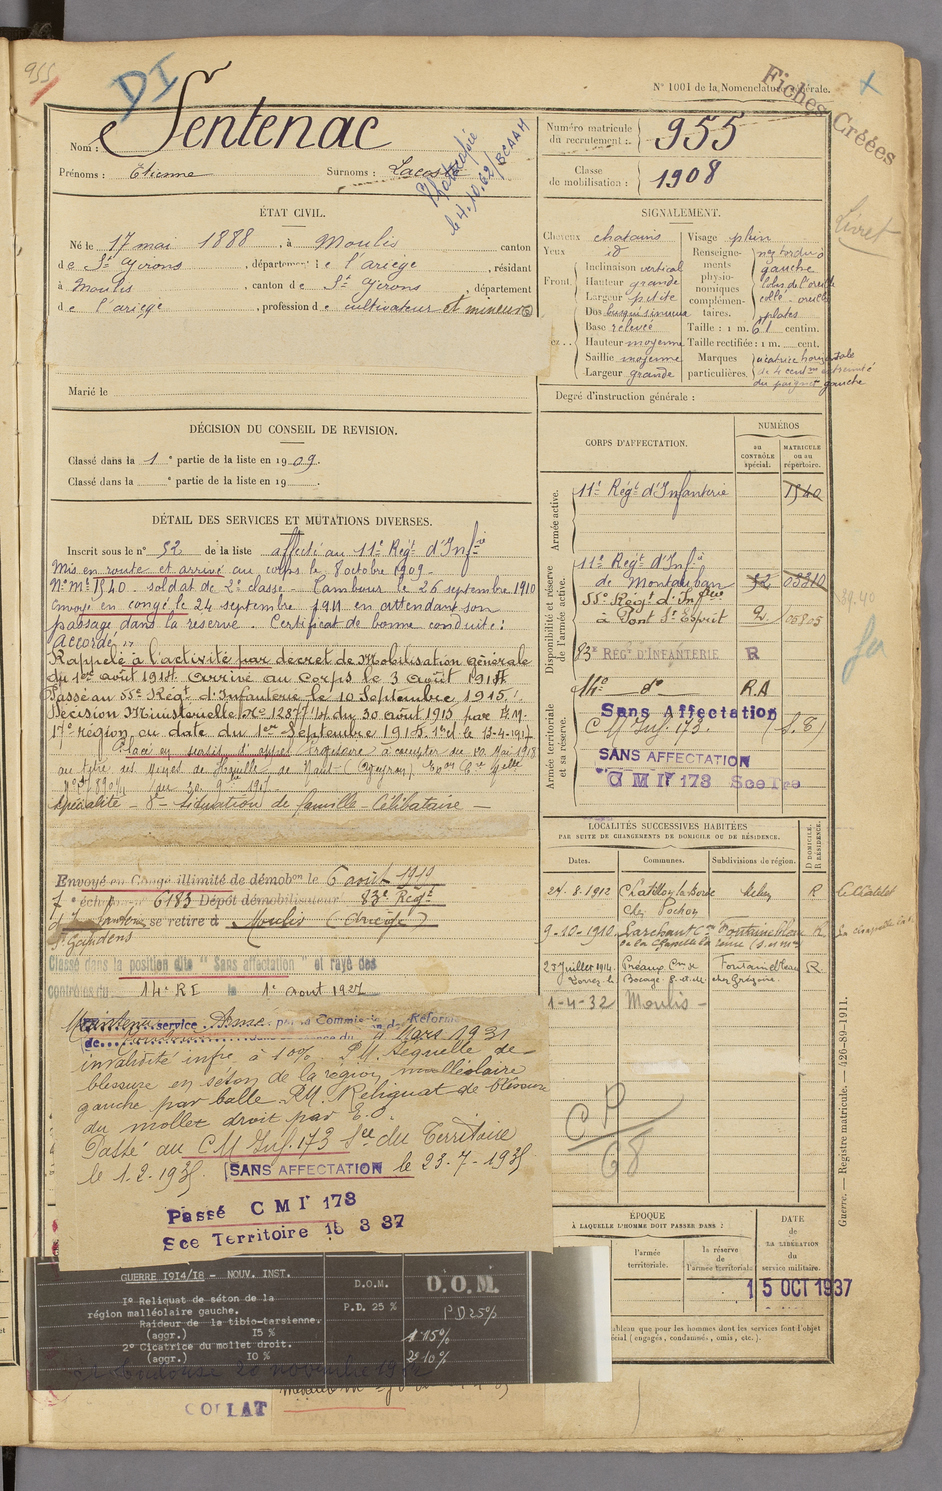 955
DI
N° 1001 de la Nomenclature générale.
Fiches Créées
Nom : Sentenac
Prénoms : Etienne Surnoms : Lacoste
Photocopiée
le 4.10.62/BCAAM
Numéro matricule
du recrutement : 955
Classe
de mobilisation : 1908
ÉTAT CIVIL.
Né le 17 mai 1888, à Moulis canton
de St Girons, département de l'ariège, résidant
à Moulis, canton de St Girons, département
de l'ariège, profession de cultivateur et mineur
Marié le
SIGNALEMENT.
Cheveux chatains
Yeux id
Front
Inclinaison vertical
Hauteur grande
Largeur petite
Dos busqué sinueux
Base relevée
Hauteur moyenne
Saillie moyenne
Largeur grande
Visage plein
Renseignements physionomiques complémentaires.
nez tordu à
gauche
lobes de l'oreille
collé - oreilles
plates
Taille : 1 m. 61 centim.
Taille rectifiée : 1 m. cent.
Marques particulières.
cicatrice horizontale
de 4 cent
du poignet gauche
Livret
Degré d'instruction générale :
DÉCISION DU CONSEIL DE REVISION.
Classé dans la 1e partie de la liste en 1909.
Classé dans la e partie de la liste en 19 .
DÉTAIL DES SERVICES ET MUTATIONS DIVERSES.
Inscrit sous le n° 52 de la liste affecté au 11e Régt d'Infrie
Mis en route et arrivé au corps le 8 octobre 1909.
N° Mle 1540. soldat de 2e classe. Tambour le 26 septembre 1910
Envoyé en congé le 24 septembre 1911 en attendant son
passage dans la réserve. Certificat de bonne conduite :
accordé
Rappelé à l'activité par decret de Mobilisation générale
du 1er août 1914. Arrivé au Corps le 3 août 1914
Passé au 55e Rég. d'Infanterie le 10 Septembre 1915.
Décision Ministerielle No 12877 du 30 août 1915
17e région en date du 1er Septembre 1915.
Placé en sursis d'appel à compter du 10 Mai 1918
au titre des Mines de
Spécialité - 8e - Situation de famille - Célibataire -
Envoyé en Congé illimité de démobon le 6 août 1919
7e échelon no 6183 Dépôt démobilisateur 83e Régt
se retire à Moulis (Ariège)
St Gaudens
Classé dans la position dite "Sans affectation" et rayé des
contrôles du 14e RI le 1e aout 1927
Maintenu service Armé par la Commission de Réforme
de Toulouse 4 Mars 1931
invalidité infre à 10% P.M. Séquelle de
blessure en séton de la région malléolaire
gauche par balle. P.M. Reliquat de blessure
du mollet droit par E.O.
Passé au C M Inf. 173 Son du Territoire
le 1.2.1935 SANS AFFECTATION le 23.7.1935
Passé C M Ir 173
Sce Territoire 15 3 37
CORPS D'AFFECTATION.
NUMÉROS
au CONTRÔLE spécial.
MATRICULE ou au répertoire.
Armée active.
11e Régt d'Infanterie 1540
Disponibilité et réserve de l'armée active.
11e Régt d'Infie
de Montauban 52 03210
55e Régt d'Infrie
à Pont St Esprit 2
83e REGT D'INFANTERIE R
Armée territoriale et sa réserve.
14e do R.A
Sans Affectation
C M Inf. 173. (S.T)
SANS AFFECTATION
C M Ir 173 Sce Tre
LOCALITÉS SUCCESSIVES HABITÉES
PAR SUITE DE CHANGEMENTS DE DOMICILE OU DE RÉSIDENCE.
Dates. Communes. Subdivisions de région. D DOMICILE. R RÉSIDENCE.
24.8.1912 Chatillon la Borde Melun R
chez Pochon
9-10-1910 Larchant Cne Fontainebleau R
de la Chapelle
23 Juillet 1914 Préaux Cne de Fontainebleau R
chez Grégoire
1-4-32 Moulis -
CP
68
ÉPOQUE
À LAQUELLE L'HOMME DOIT PASSER DANS :
l'armée territoriale.
la réserve de l'armée territoriale
DATE
de
LA LIBÉRATION
du
service militaire.
15 OCT 1937
tableau que pour les hommes dont les services font l'objet
spécial (engagés, condamnés, omis, etc.).
Guerre. — Registre matricule. — 426-89-1911.
GUERRE 1914/18 - NOUV. INST.
1° Reliquat de séton de la
région malléolaire gauche.
Raideur de la tibio-tarsienne.
(aggr.) 15 %
2° Cicatrice du mollet droit.
(aggr.) 10 %
D.O.M.
P.D. 25 %
D.O.M.
PD 25%
1° 15%
2° 10%
COLLAT